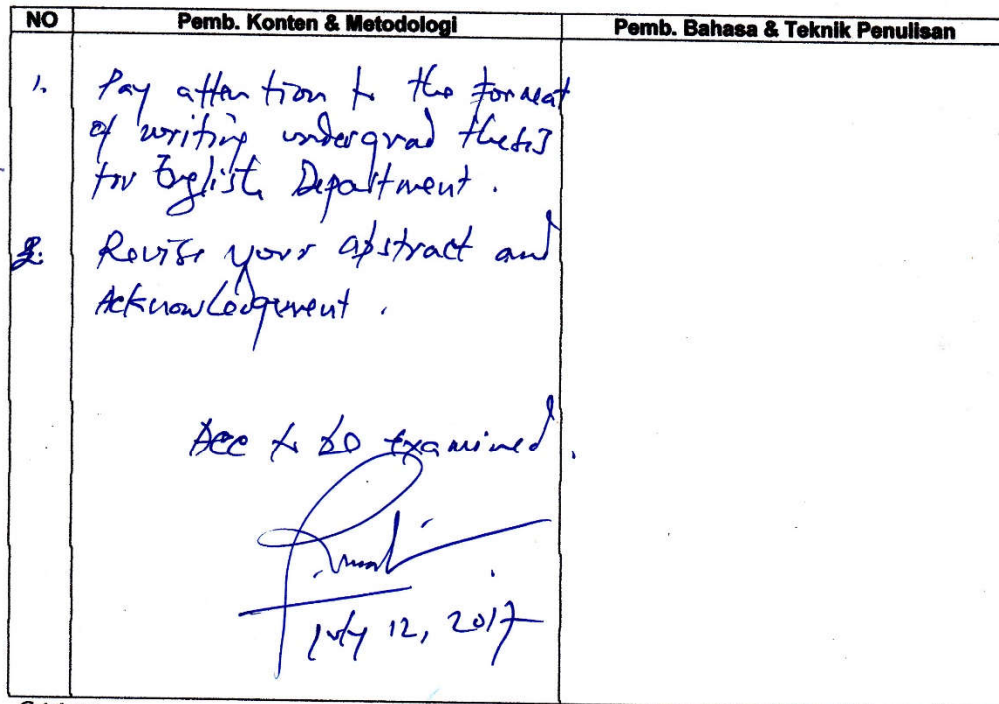 NO Pemb. Konten & Metodologi Pemb. Bahasa & Teknik Penulisan
1. Pay attention to the format
of writing undergrad thesis
for English Department.
2. Revise your abstract and
Acknowledgment.
Acc to be examined.
July 12, 2017